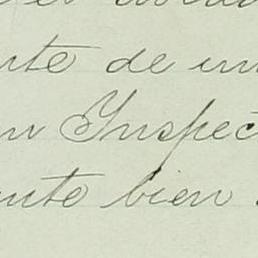 nte de un
n Inspec
ente bien